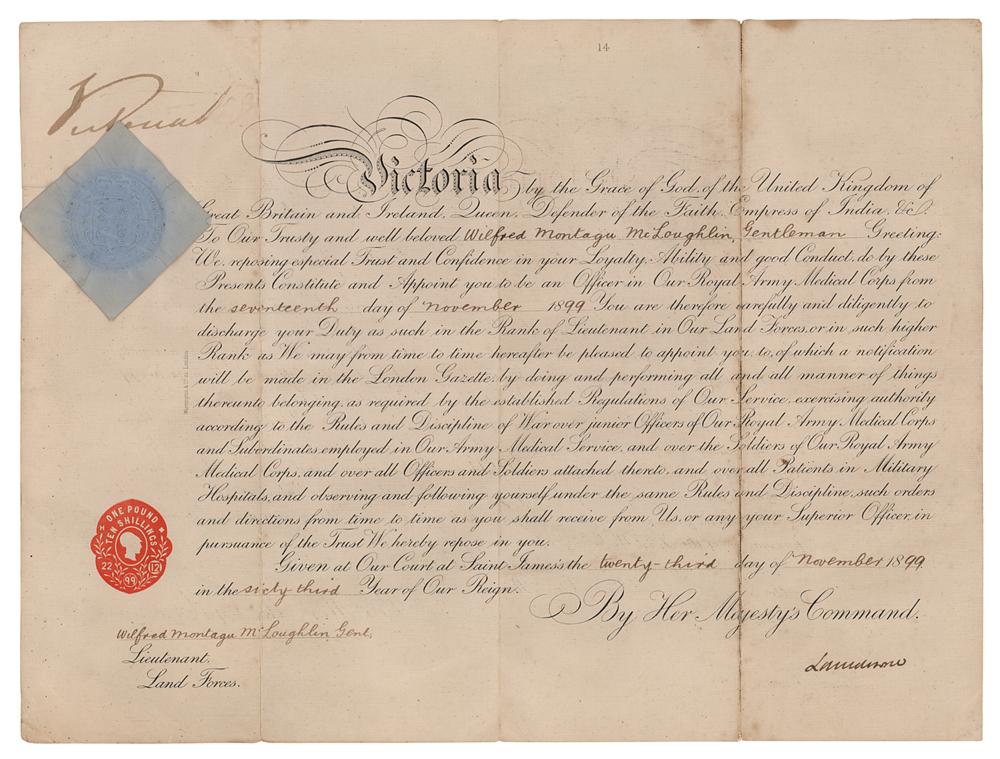 14
Victoria by the Grace of God, of the United Kingdom of
Great Britain and Ireland, Queen, Defender of the Faith, Empress of India, &c.
To Our Trusty and well beloved Wilfred Montagu McLoughlin, Gentleman Greeting:
We, reposing especial Trust and Confidence in your Loyalty, Ability and good Conduct, do by these
Presents Constitute and Appoint you to be an Officer in Our Royal Army Medical Corps from
the seventeenth day of November 1899 You are therefore carefully and diligently to
discharge your Duty as such in the Rank of Lieutenant in Our Land Forces, or in such higher
Rank as We may from time to time hereafter be pleased to appoint you to, of which a notification
will be made in the London Gazette, by doing and performing all and all manner of things
thereunto belonging, as required by the established Regulations of Our Service, exercising authority
according to the Rules and Discipline of War over junior Officers of Our Royal Army Medical Corps
and Subordinates employed in Our Army Medical Service, and over the Soldiers of Our Royal Army
Medical Corps, and over all Officers and Soldiers attached thereto, and over all Patients in Military
Hospitals, and observing and following yourself, under the same Rules and Discipline, such orders
and directions from time to time as you shall receive from Us, or any your Superior Officer, in
pursuance of the Trust We hereby repose in you.
Given at Our Court at Saint James's the twenty-third day of November 1899
in the sixty third Year of Our Reign.
By Her Majesty's Command.
ONE POUND
TEN SHILLINGS
22 12
99
Wilfred Montagu McLoughlin Gent.
Lieutenant.
Land Forces.
Lansdowne